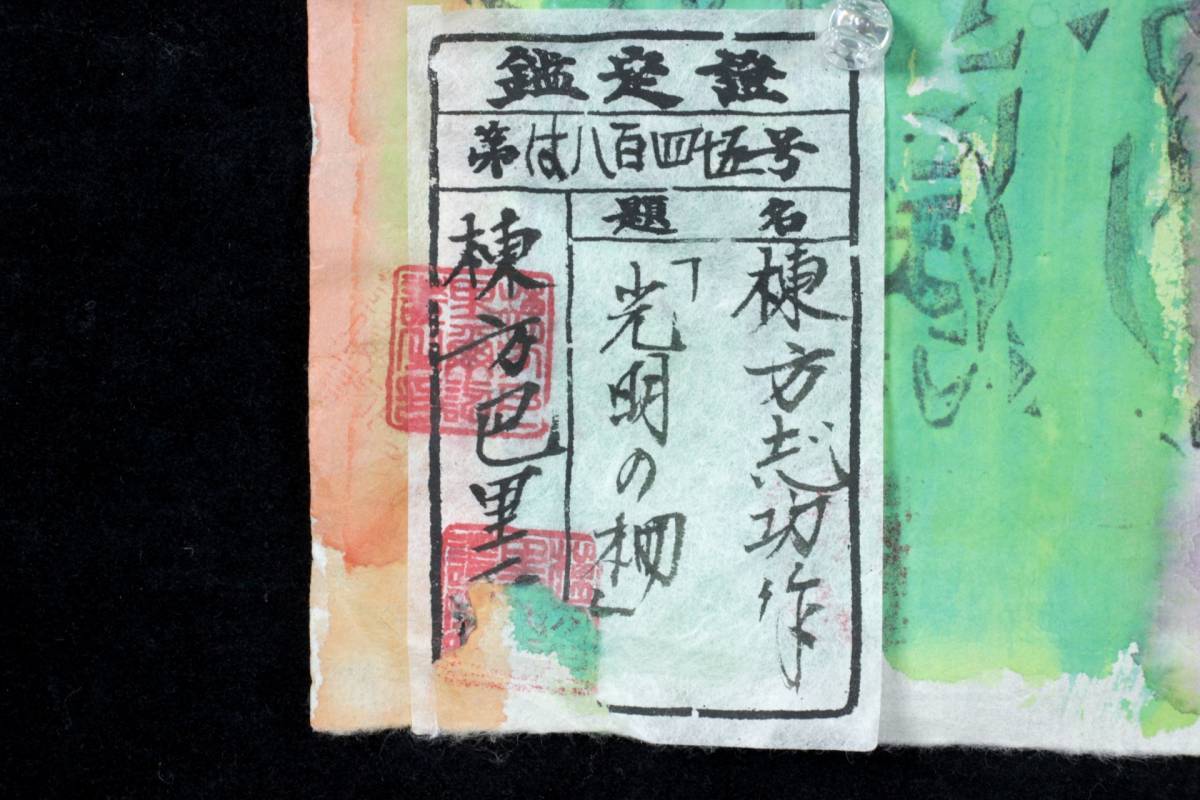 鑑定證
第は八百四十五号
題名
棟方志功作
「光明の柵」
棟方巴里